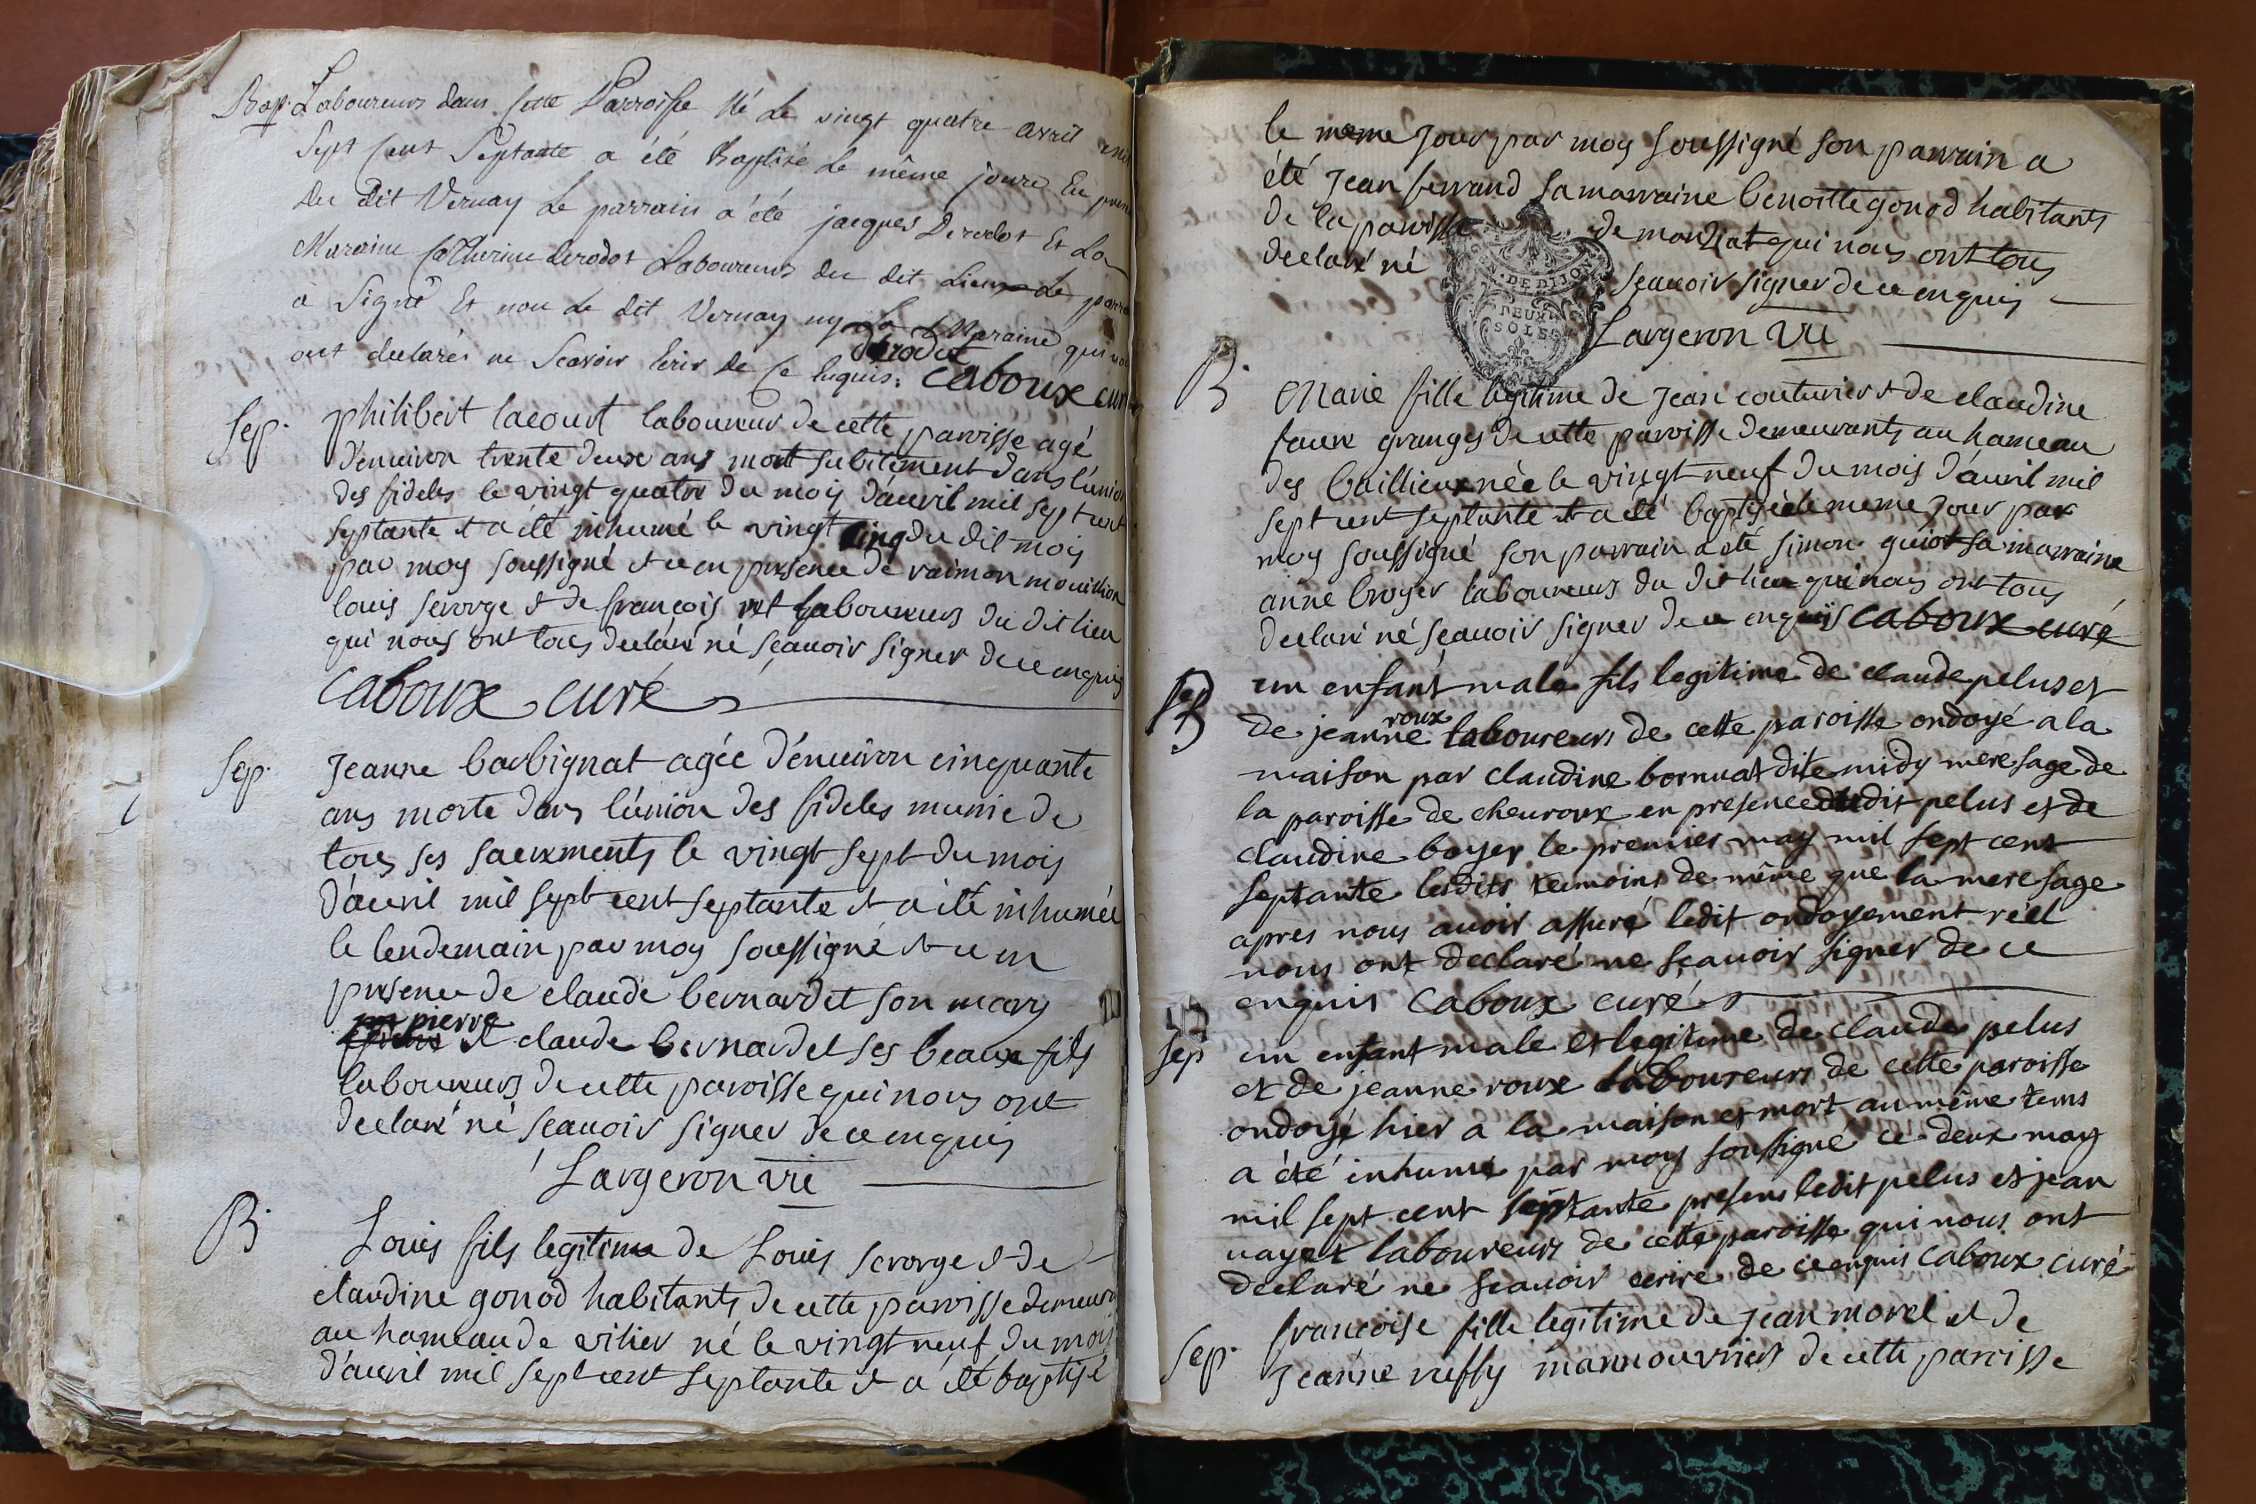 Bap. Laboureurs dans Cette Parroisse Né Le vingt quatre avril mil
Sept Cent Septante a été Baptisé Le même jour En presence
du dit Vernay Le parrain a été jacques Derodot Et La
Maraine Catherine derodot Laboureurs du dit Lieu Le parrain
a Signé Et non Le dit Vernay ny La Maraine qui nous
ont declarés ne Scavoir Ecrir de Ce Enquis. derodot Caboux curé
Sep. philibert lacourt laboureur de cette paroisse agé
d'environ trente deux ans mort subitement dans l'union
des fideles le vingt quatre du mois d'avril mil sept cent
septante et a été inhumé le vingt cinq du dit mois
par moy soussigné et ce en presence de raimon mouillion
louis serorge et de françois laboureurs du dit lieu
qui nous ont tous declaré né sçauoir signer de ce enquis
Caboux curé
Sep. Jeanne barbignat agée d'enuiron cinquante
ans morte dans l'union des fideles munie de
tous ses sacrements le vingt sept du mois
d'avril mil sept cent septante et a été inhumée
le lendemain par moy soussigné et ce en
presence de claude bernardet son mary
pierre
et claude bernardet ses beaux fils
laboureurs de cette paroisse qui nous ont
declaré né sçauoir signer de ce enquis
Largeron vic
B. Louis fils legitime de Louis serorge et de
claudine gonod habitants de cette paroisse demeurants
au hameau de vilier né le vingt neuf du mois
d'avril mil sept cent septante et a été baptisé
le meme jour par moy soussigné son parrain a
été jean ferrand sa marraine benoitte gonod habitants
de la paroisse de manziat qui nous ont tous
declaré né sçauoir signer de ce enquis
GEN. DE DIJON
DEUX
SOLS
Largeron vic
B. Marie fille legitime de jean couturier et de claudine
faux granges de cette paroisse demeurants au hameau
des baillieux née le vingt neuf du mois d'auril mil
sept cent septante et a été baptisée le meme jour par
moy soussigné son parrain a été simon guiot sa marraine
anne broyer laboureurs du dit lieu qui nous ont tous
declaré né sçauoir signer de ce enquis Caboux curé
B un enfant male fils legitime de claude pelus et
roux
de jeanne laboureurs de cette paroisse ondoyé a la
maison par claudine bornuat dite midy mere sage de
la paroisse de cheuroux en presence dudit pelus et de
claudine boyer le premier may mil sept cent
septante lesdits temoins de même que la mere sage
apres nous auoir assuré ledit ondoyement réel
nous ont declaré ne sçauoir signer de ce
enquis Caboux curé
sep un enfant male et legitime de claude pelus
et de jeanne roux laboureurs de cette paroisse
ondoyé hier a la maison et mort au même tems
a été inhumé par moy soussigné ce deux may
mil sept cent septante presens ledit pelus et jean
uayer laboureurs de cette paroisse qui nous ont
declaré ne sçauoir ecrire de ce enquis Caboux curé
Sep. françoise fille legitime de jean morel et de
Jeanne ruffy manouvriers de cette paroisse